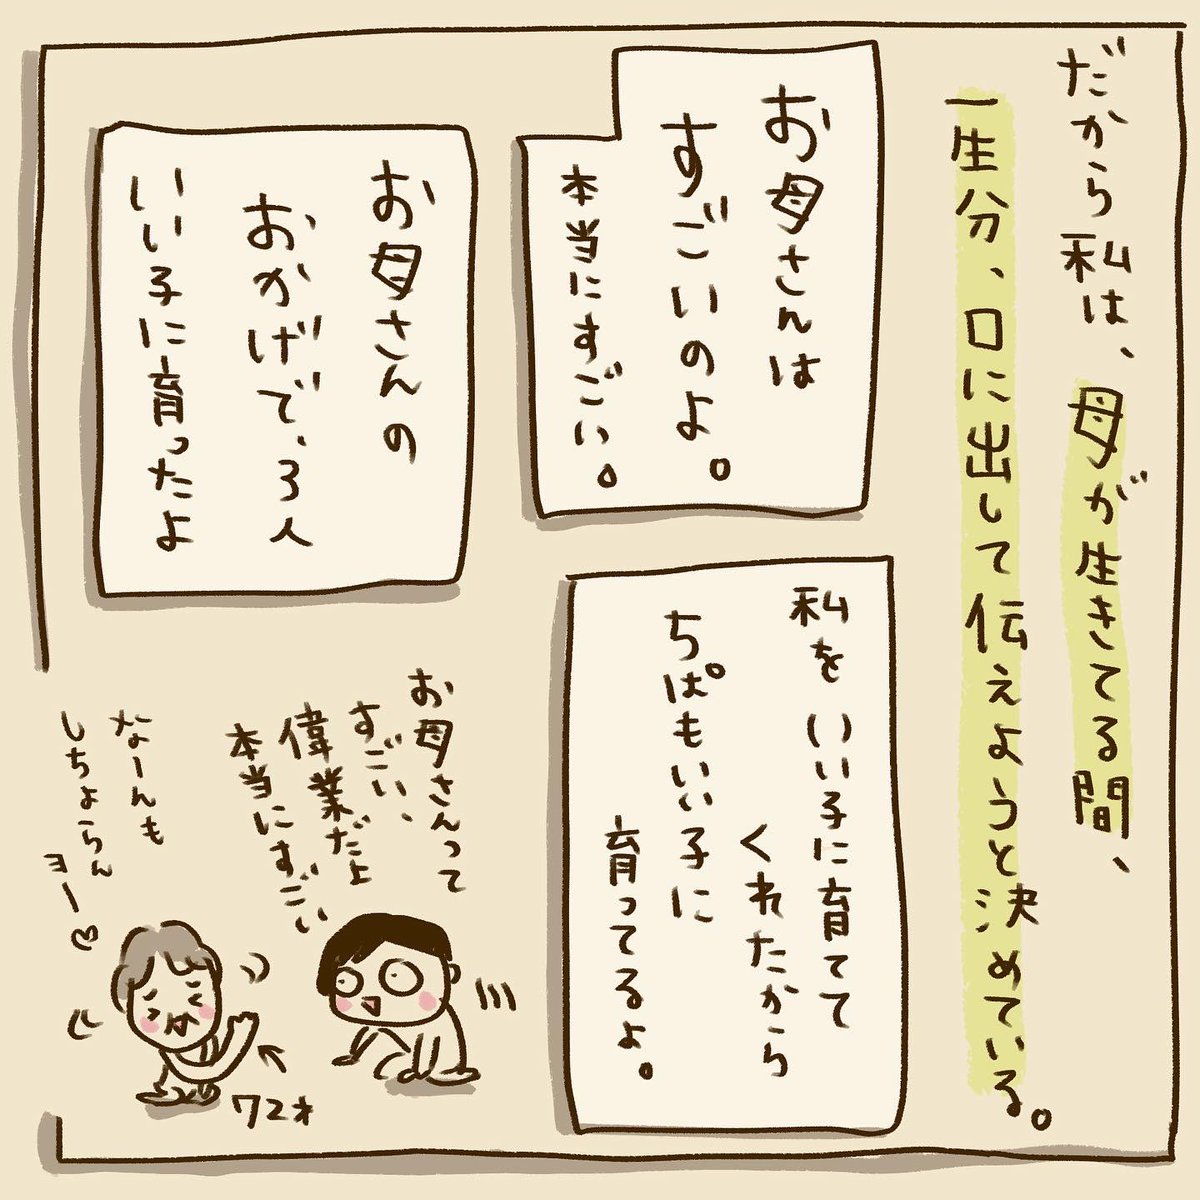 だから私は、母が生きてる間、
一生分、口に出して伝えようと決めている。
お母さんは
すごいのよ。
本当にすごい。
お母さんの
おかげで、3人
いい子に育ったよ
私をいい子に育てて
くれたから
ちぱもいい子に
育ってるよ。
お母さんって
すごい、
偉業だよ
本当にすごい
なーんも
しちょらん
ヨー♡
72才